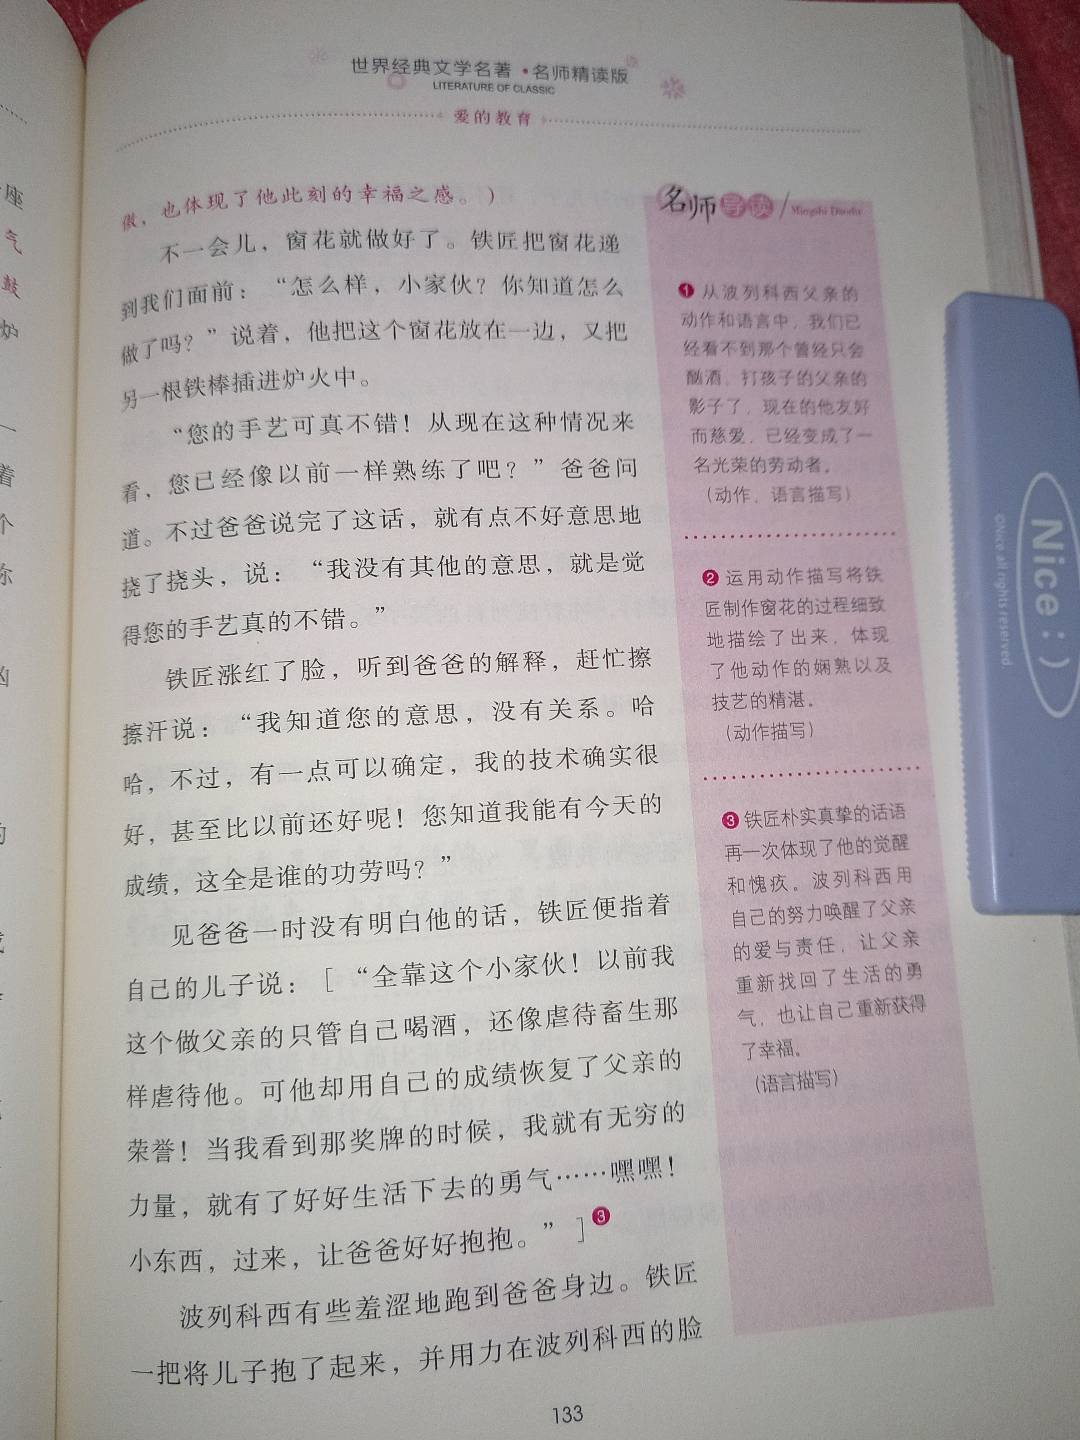 世界经典文学名著·名师精读版
LITERATURE OF CLASSIC
爱的教育
傲，也体现了他此刻的幸福之感。）
不一会儿，窗花就做好了。铁匠把窗花递
到我们面前：“怎么样，小家伙？你知道怎么
做了吗？”说着，他把这个窗花放在一边，又把
另一根铁棒插进炉火中。
“您的手艺可真不错！从现在这种情况来
看，您已经像以前一样熟练了吧？”爸爸问
道。不过爸爸说完了这话，就有点不好意思地
挠了挠头，说：“我没有其他的意思，就是觉
得您的手艺真的不错。”
铁匠涨红了脸，听到爸爸的解释，赶忙擦
擦汗说：“我知道您的意思，没有关系。哈
哈，不过，有一点可以确定，我的技术确实很
好，甚至比以前还好呢！您知道我能有今天的
成绩，这全是谁的功劳吗？”
见爸爸一时没有明白他的话，铁匠便指着
自己的儿子说：［“全靠这个小家伙！以前我
这个做父亲的只管自己喝酒，还像虐待畜生那
样虐待他。可他却用自己的成绩恢复了父亲的
荣誉！当我看到那奖牌的时候，我就有无穷的
力量，就有了好好生活下去的勇气……嘿嘿！
小东西，过来，让爸爸好好抱抱。”］❸
波列科西有些羞涩地跑到爸爸身边。铁匠
一把将儿子抱了起来，并用力在波列科西的脸
133
名师导读/Mingshi Daodu
❶ 从波列科西父亲的
动作和语言中，我们已
经看不到那个曾经只会
酗酒、打孩子的父亲的
影子了，现在的他友好
而慈爱，已经变成了一
名光荣的劳动者。
（动作、语言描写）
❷ 运用动作描写将铁
匠制作窗花的过程细致
地描绘了出来，体现
了他动作的娴熟以及
技艺的精湛。
（动作描写）
❸ 铁匠朴实真挚的话语
再一次体现了他的觉醒
和愧疚。波列科西用
自己的努力唤醒了父亲
的爱与责任，让父亲
重新找回了生活的勇
气，也让自己重新获得
了幸福。
（语言描写）
Nice:)
座
气
鼓
炉
一
着
个
你